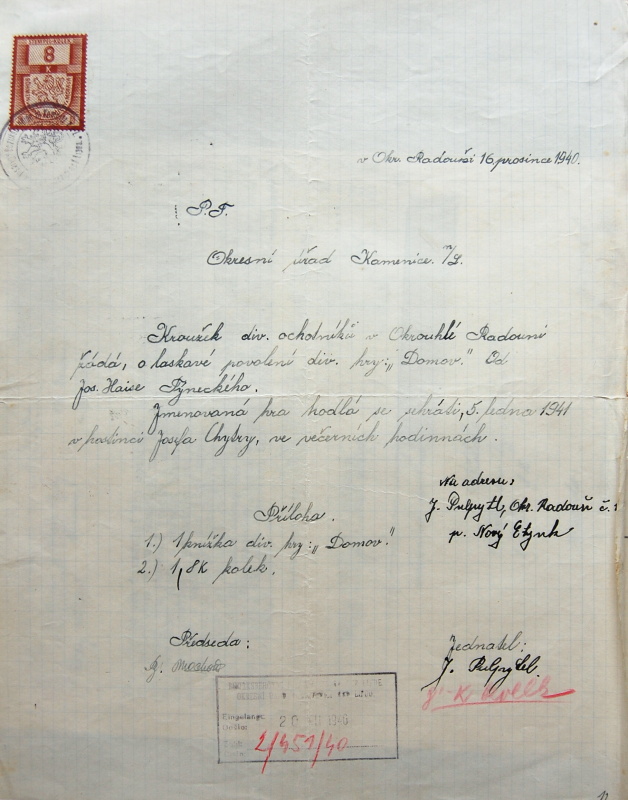 STEMPEL-KOLEK
8
K
v Okr. Radouni 16. prosince 1940.
P.T.
Okresní úřad Kamenice n/L.
Kroužek div. ochotníků v Okrouhlé Radouni
žádá, o laskavé povolení div. hry: „Domov." Od
Jos. Haise Týneckého.
Jmenovaná hra hodlá se sehráti, 5. ledna 1941
v hostinci Josefa Chytry, ve večerních hodinnách.
Na adresu:
J. Pulpytl, Okr. Radouň č. 1
p. Nový Etynk
Příloha.
1.) 1 knížka div. hry: „Domov."
2.) 1, 8K kolek.
Předseda:
Jednatel:
J. Pulpytel.
Eingelangt
Došlo:
20 1940
2/451/40